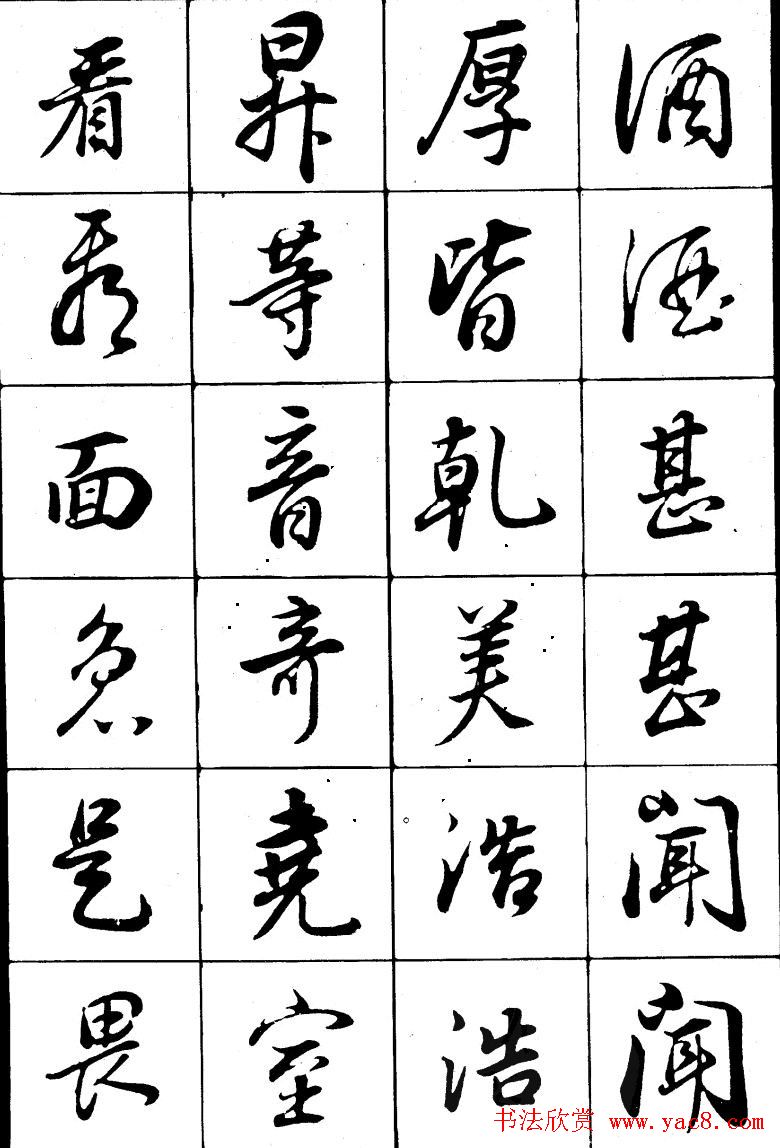 酒酒甚甚聞聞
厚皆乾美浩浩
昇等音奇堯室
看看面急是畏
书法欣赏 www.yac8.com